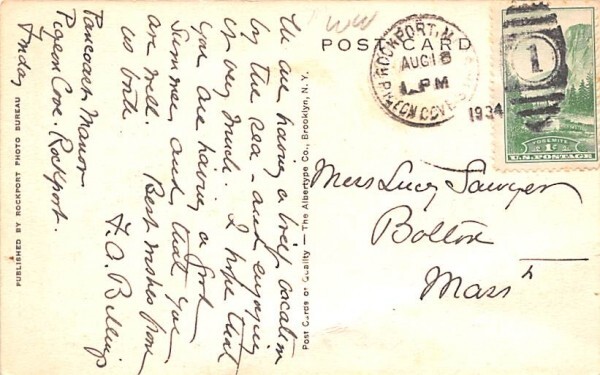 WW
POST CARD
ROCKPORT, M
AUG 18
1 PM
PIGEON COVE
1934
1
YOSEMITE
1¢
U.S. POSTAGE
We are having a brief vacation
by the sea - and enjoying
it very much. I hope that
you are having a good
Summer, and that you
are well. Best wishes from
us both.
F. A. Billings
Pancoast Manor
Pigeon Cove. Rockport.
Friday
Miss Lucy Sawyer
Bolton
Mass
Post Cards of Quality — The Albertype Co., Brooklyn, N. Y.
PUBLISHED BY ROCKPORT PHOTO BUREAU